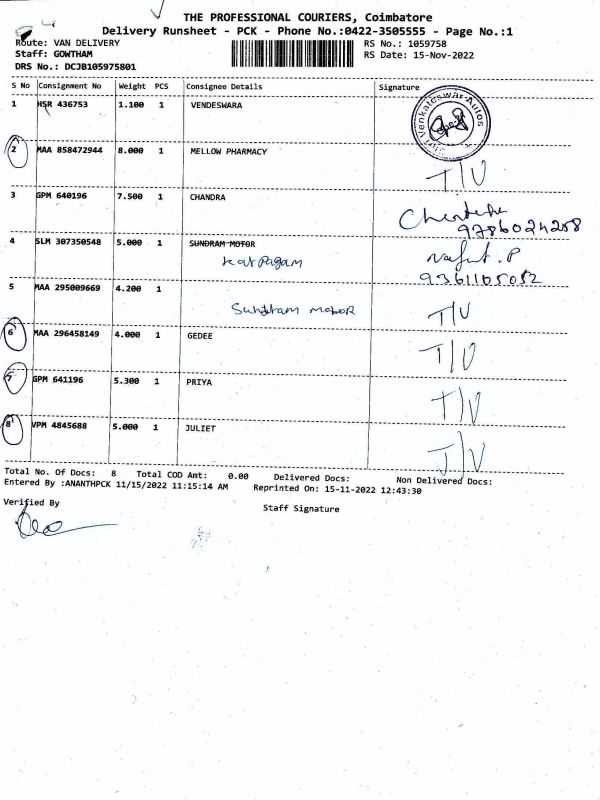 THE PROFESSIONAL COURIERS, Coimbatore
Delivery Runsheet - PCK - Phone No.:0422-3505555 - Page No.:1
Route: VAN DELIVERY RS No.: 1059758
Staff: GOWTHAM RS Date: 15-Nov-2022
DRS No.: DCJB105975801
S No Consignment No Weight PCS Consignee Details Signature
1 HSR 436753 1.100 1 VENDESWARA
Venkateswar Autos
2 MAA 858472944 8.000 1 MELLOW PHARMACY
T/V
3 GPM 640196 7.500 1 CHANDRA
9786024258
4 SLM 307350548 5.000 1 SUNDRAM MOTOR
Karpagam
9361105052
5 MAA 295009669 4.200 1
Sundram motor T/V
6 MAA 296458149 4.000 1 GEDEE T/V
7 GPM 641196 5.300 1 PRIYA T/V
8 VPM 4845688 5.000 1 JULIET T/V
Total No. Of Docs: 8 Total COD Amt: 0.00 Delivered Docs: Non Delivered Docs:
Entered By :ANANTHPCK 11/15/2022 11:15:14 AM Reprinted On: 15-11-2022 12:43:30
Verified By Staff Signature